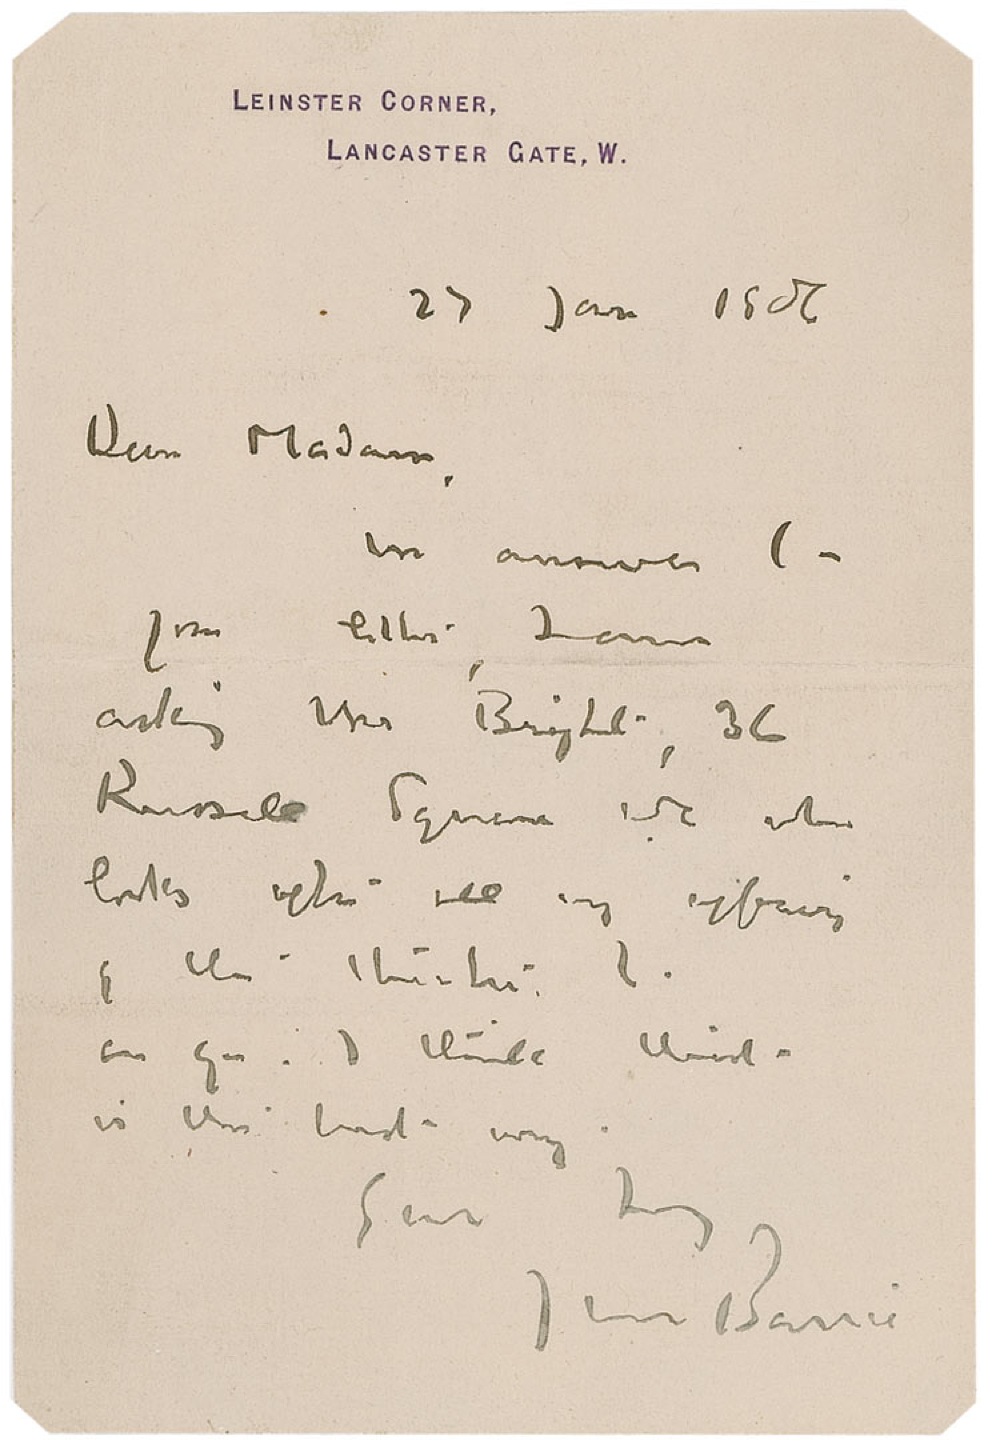 LEINSTER CORNER,
LANCASTER GATE, W.
27 Jan 1906
Dear Madam,
in answer to
your letter, I am
asking Mr Bright, 36
Russell Square who
looks after all my affairs
of this
I think this
is the best way.
Yours truly
J M Barrie